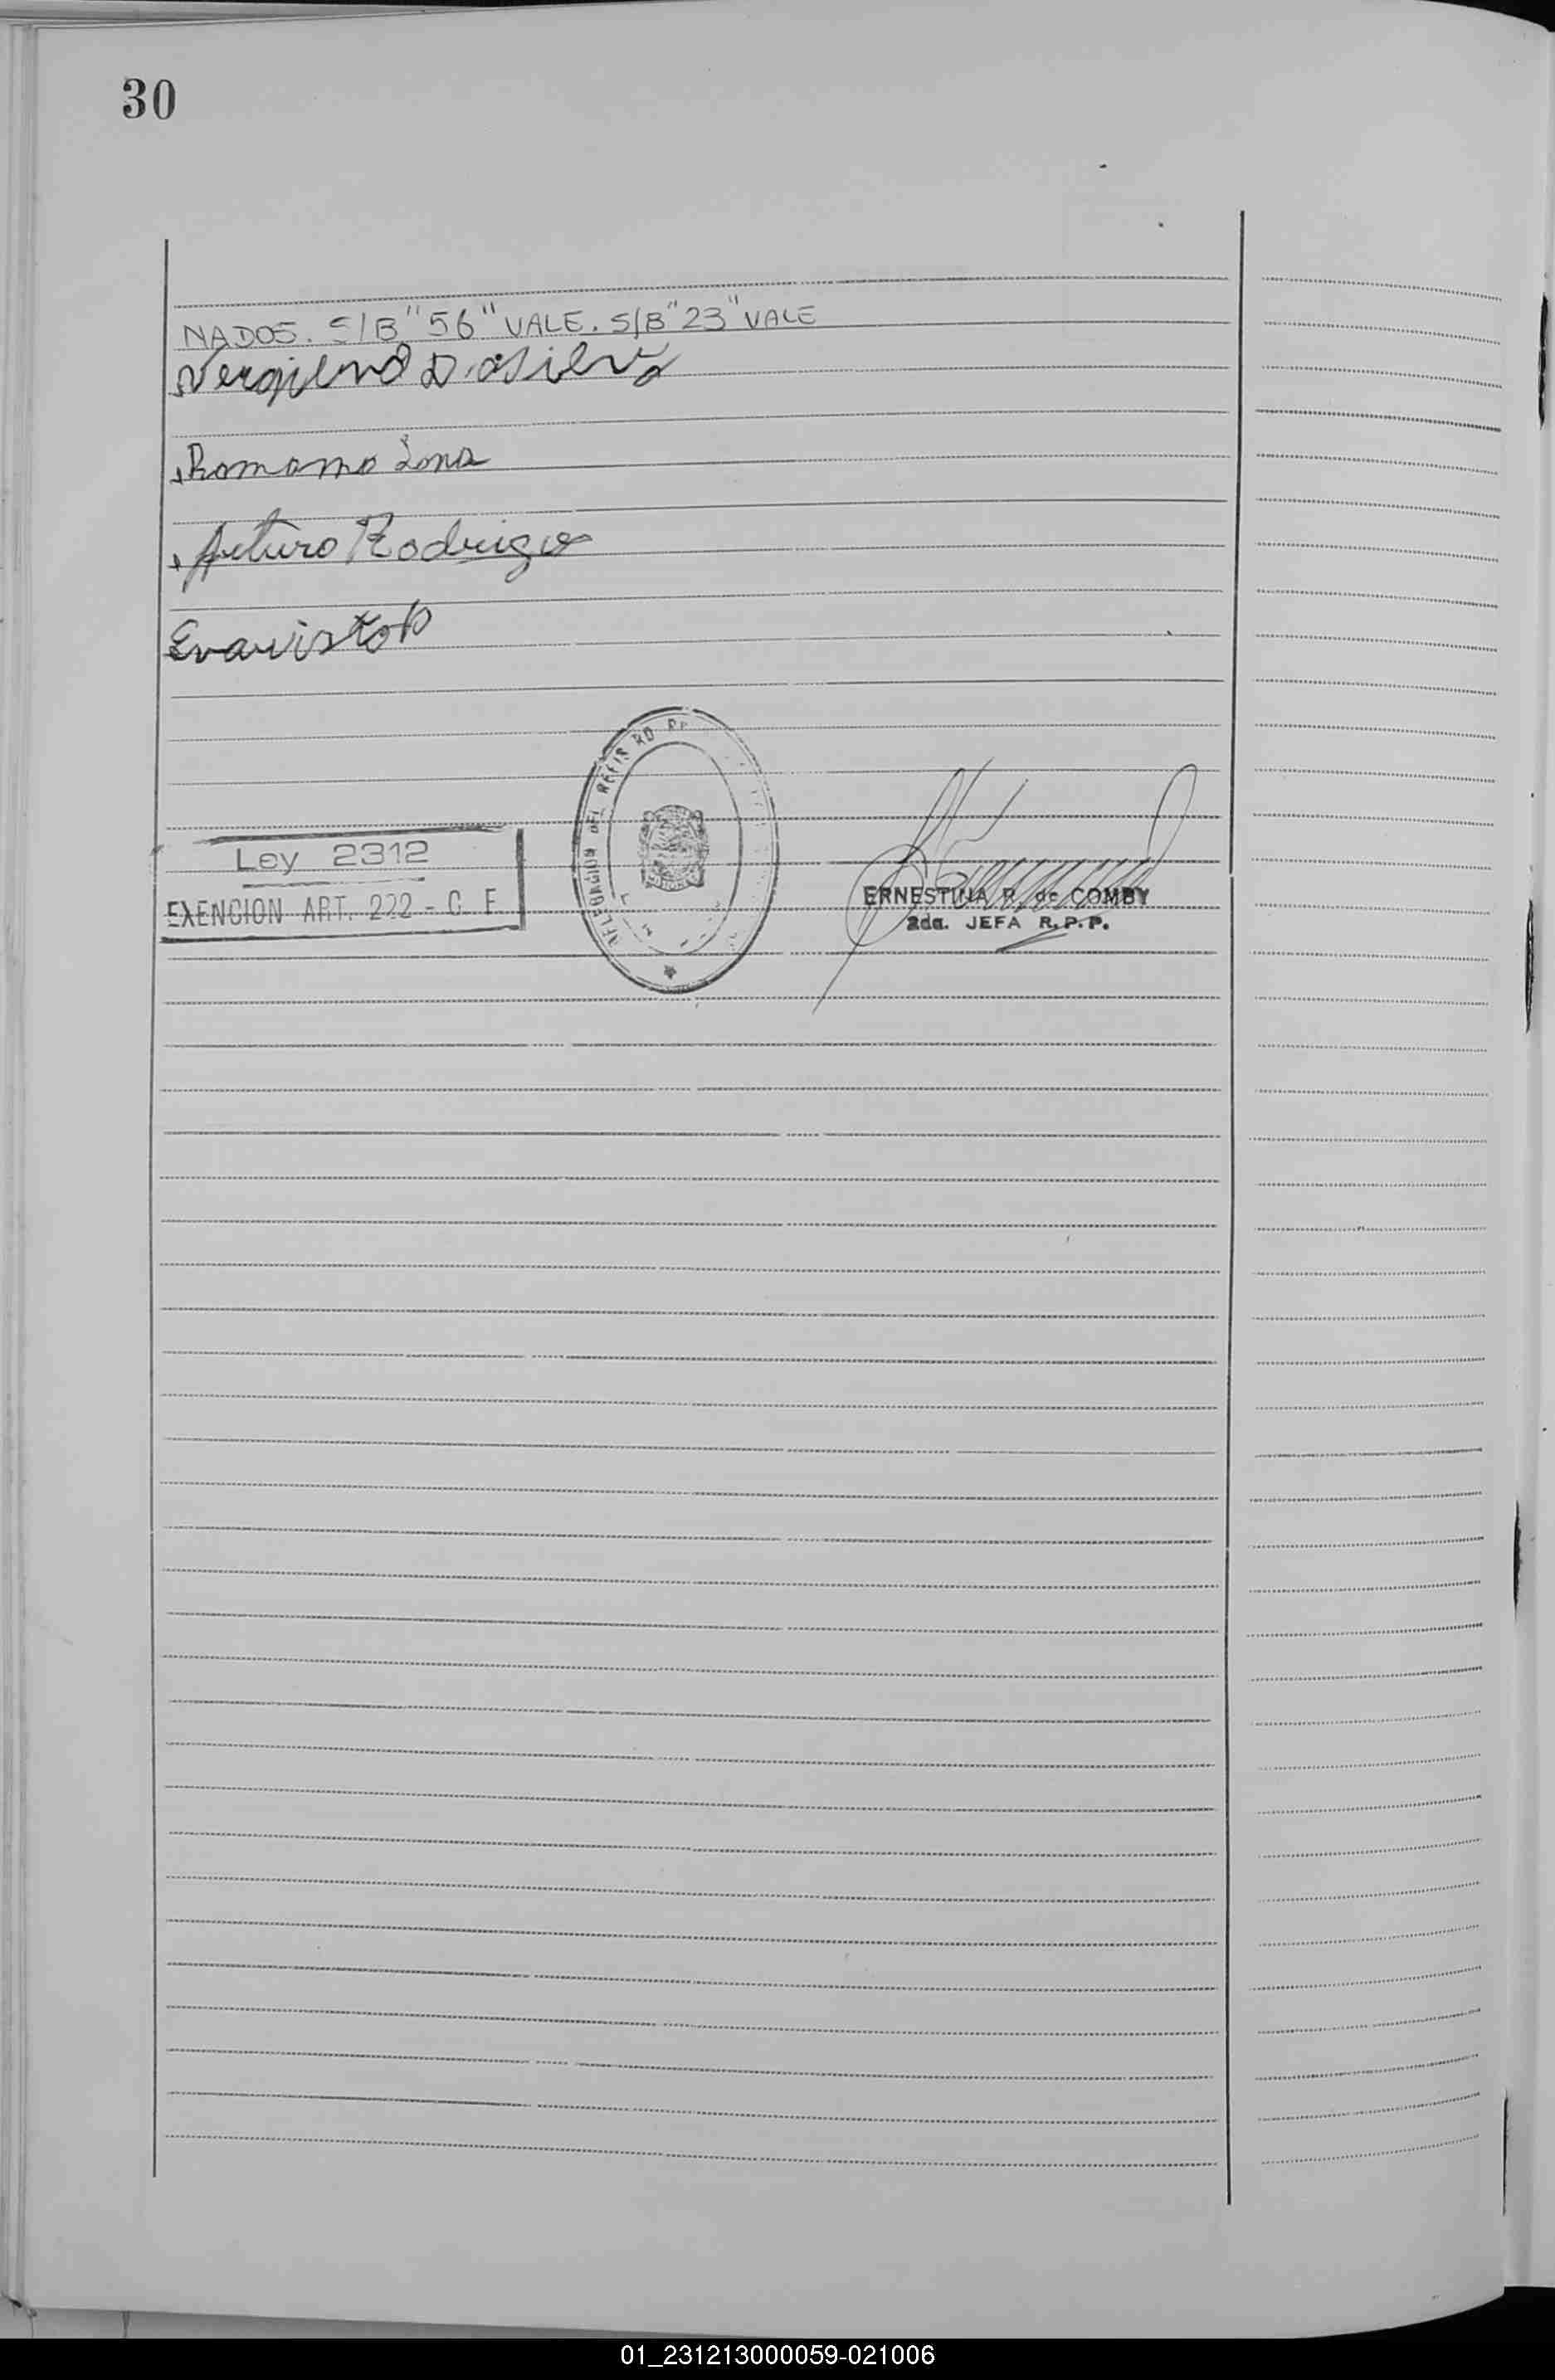 30
NADOS. S/B "56" VALE. S/B "23" VALE
Romano Luna
Arturo Rodrigo
Evaristo
Ley 2312
EXENCION ART. 222 - C. F.
DELEGACION DEL REGISTRO
ERNESTINA R. de COMBY
2da. JEFA R.P.P.
01_231213000059-021006